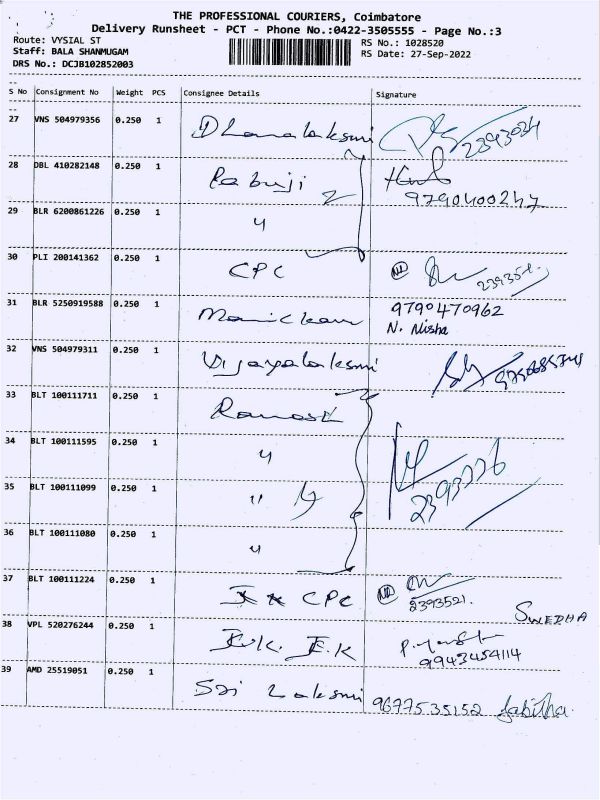 THE PROFESSIONAL COURIERS, Coimbatore
Delivery Runsheet - PCT - Phone No.:0422-3505555 - Page No.:3
Route: VYSIAL ST RS No.: 1028520
Staff: BALA SHANMUGAM RS Date: 27-Sep-2022
DRS No.: DCJB102852003
S No Consignment No Weight PCS Consignee Details Signature
27 VNS 504979356 0.250 1 Dhanalaksmi 2393024
28 DBL 410282148 0.250 1 Babuji 2 9790400247
29 BLR 6200861226 0.250 1 "
30 PLI 200141362 0.250 1 CPC
31 BLR 5250919588 0.250 1 Manickam 9790470962
N. Nisha
32 VNS 504979311 0.250 1 Vijayalaksmi
33 BLT 100111711 0.250 1
34 BLT 100111595 0.250 1 " 2393226
35 BLT 100111099 0.250 1 " 4
36 BLT 100111080 0.250 1 "
37 BLT 100111224 0.250 1 CPC 2393521.
SWEDHA
38 VPL 520276244 0.250 1 E.K 9943454114
39 AMD 25519051 0.250 1 Sri Laksmi 9677535152 Sabitha